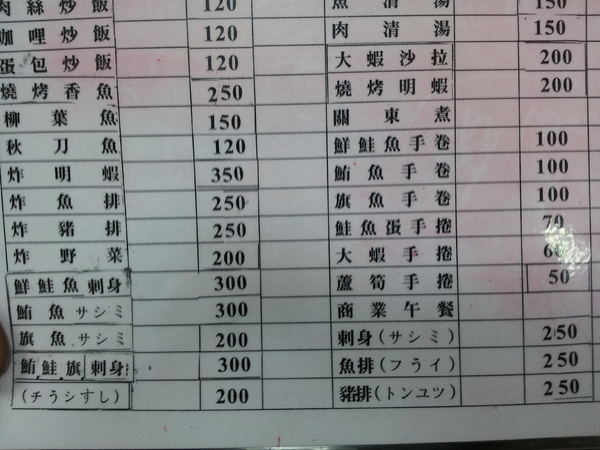 肉絲炒飯 120
咖哩炒飯 120
蛋包炒飯 120
燒烤香魚 250
柳葉魚 150
秋刀魚 120
炸明蝦 350
炸魚排 250
炸豬排 250
炸野菜 200
鮮鮭魚刺身 300
鮪魚サシミ 300
旗魚サシミ 200
鮪.鮭.旗刺身 300
(チうシすし) 200
魚清湯 150
肉清湯 150
大蝦沙拉 200
燒烤明蝦 200
關東煮
鮮鮭魚手卷 100
鮪魚手卷 100
旗魚手卷 100
鮭魚蛋手捲 70
大蝦手捲
蘆筍手捲 50
商業午餐
刺身(サシミ) 250
魚排(フライ) 250
豬排(トンユツ) 250